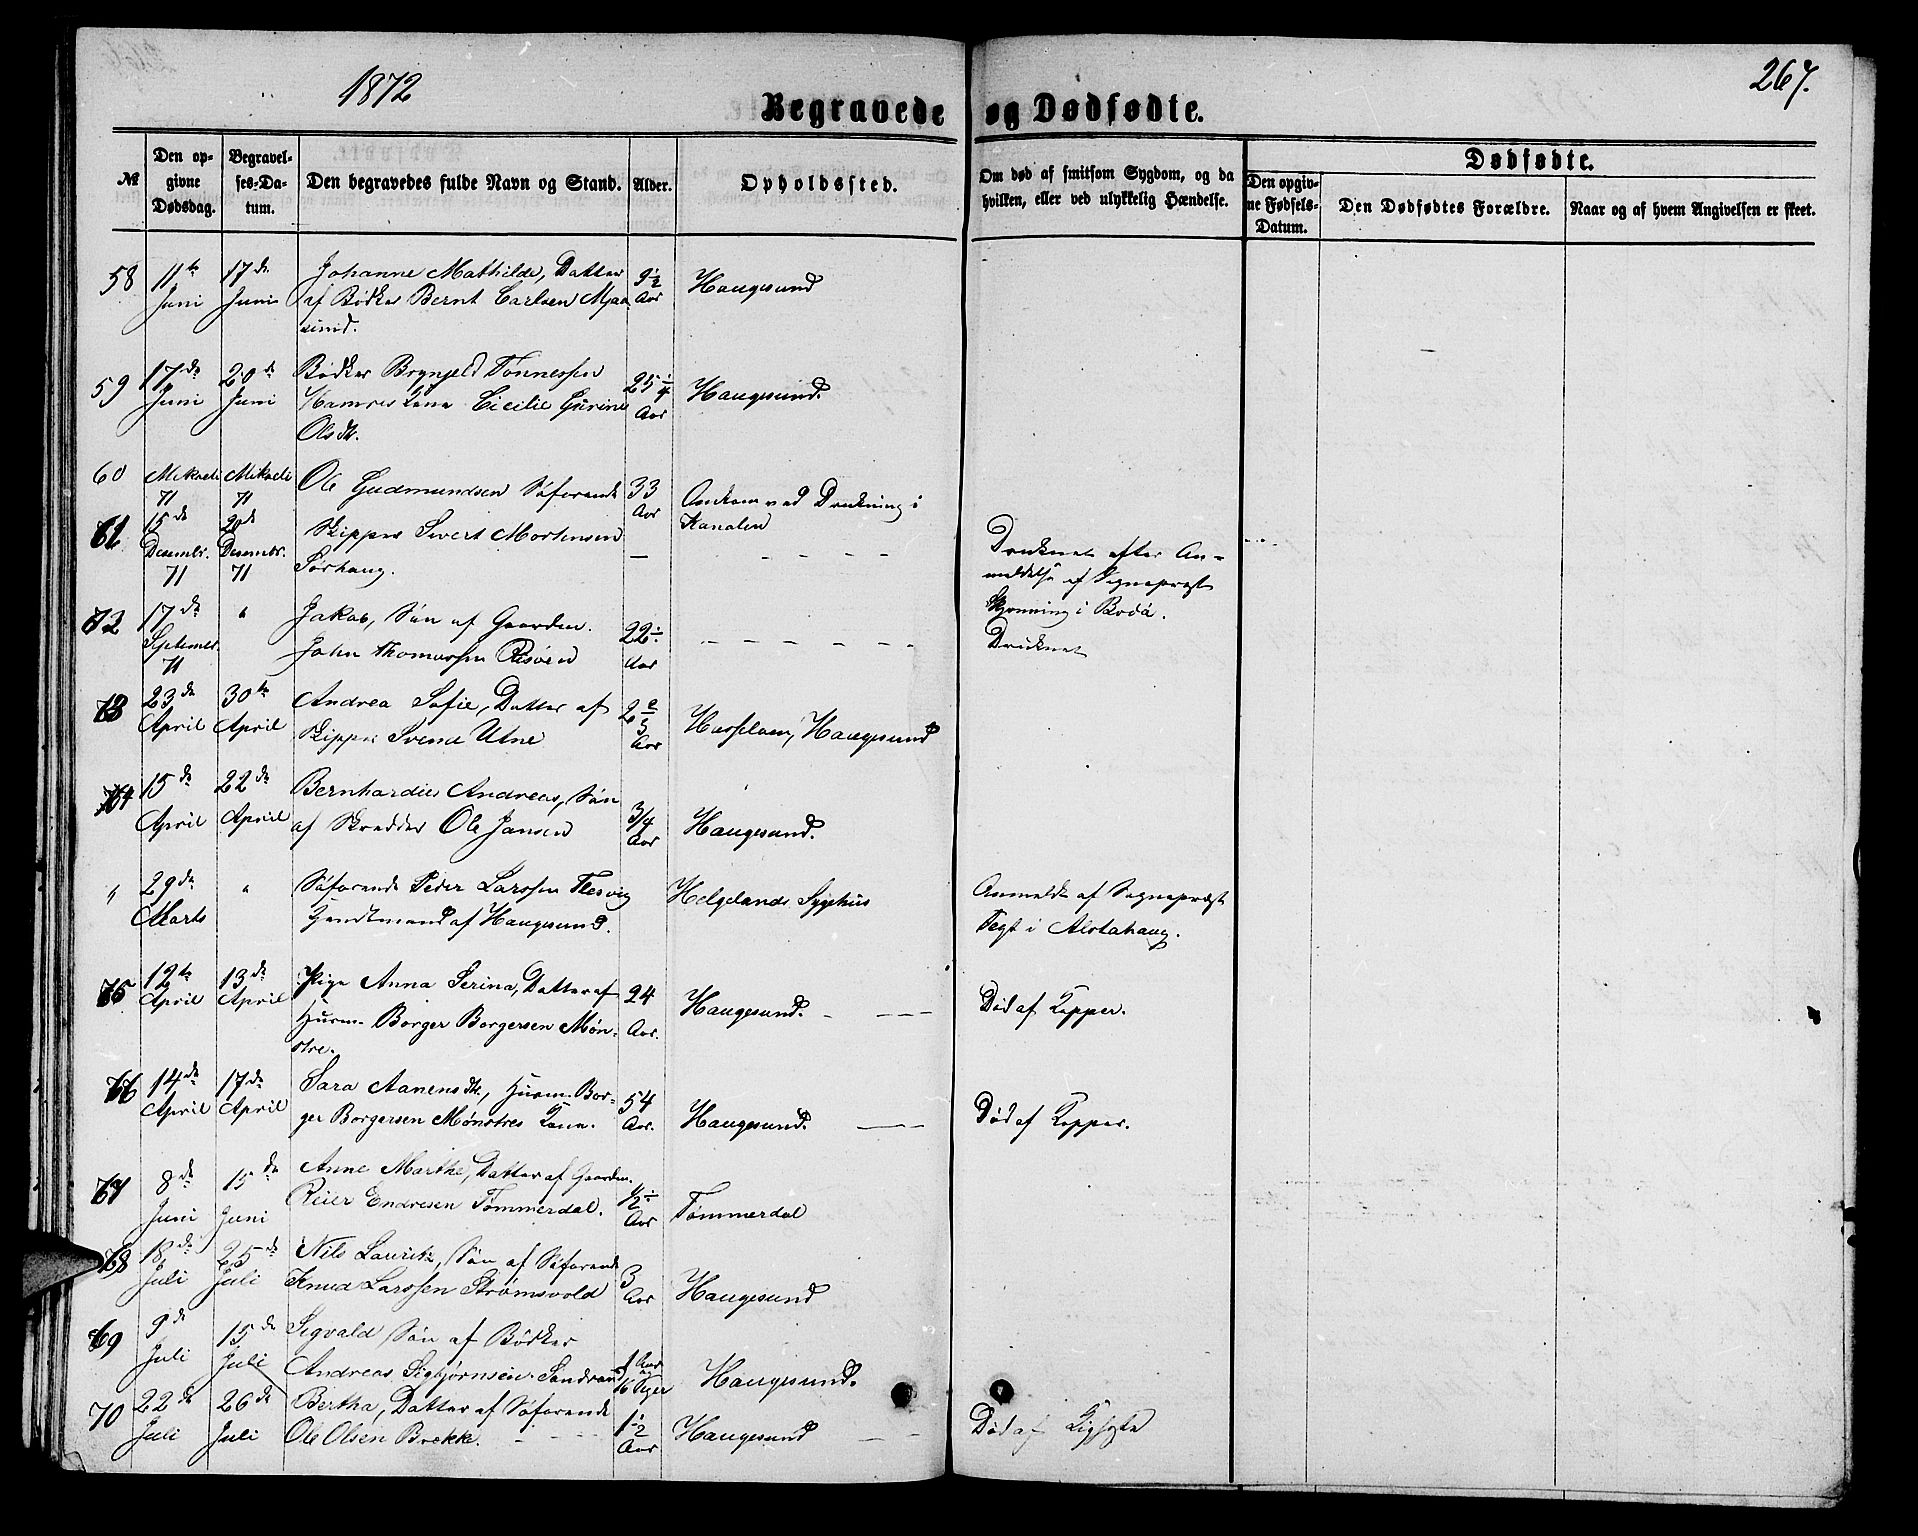 1872
267.
Begravede og Dødfødte.
№
Den opgivne Dødsdag.
Begravelses-Datum.
Den begravedes fulde Navn og Stand.
Alder.
Opholdssted.
Om død af smitsom Sygdom, og da hvilken, eller ved ulykkelig Hændelse.
Dødfødte.
Den opgivne Fødsels-Datum.
Den Dødfødtes Forældre.
Naar og af hvem Angivelsen er skeet.
58 11te Juni 17de Juni Johanne Mathilde, Datter 9½ Aar Haugesund
af Bødker Bernt Carlsen
59 17de Juni 20de Juni Bødker Brynjeld Tønnessen 25¼ Aar Haugesund.
Kone Cicilie Gurine
Olsdt.
60 Mikaeli 71 Mikaeli 71 Ole Gudmundsen Søfarende 33 Aar Omkom ved Drukning i
Kanalen
61 15de Desembr. 71 20de Desembr. 71 Skipper Sivert Mortensen — Druknet efter An-
Sørhaug. meldelse af Sognepræst
i Bodø.
62 17de Septembr. 71 " Jakob, Søn af Gaardm. 22½ Aar Druknet
John Thomassen Risøen
63 23de April 30te April Andrea Sofie, Datter af 2 Aar Hasseløen, Haugesund
Skipper Svend Utne
64 15de April 22de April Bernhardus Andreas, Søn 3/4 Aar Haugesund.
af Skrædder Ole Jansen
" 29de Marts " Søfarende Peder Larssen Helgelands Sygehus Anmeldt af Sognepræst
af Haugesund. i Alstahaug.
65 12te April 13de April Pige Anna Serina, Datter af 24 Aar. Haugesund. Død af Kopper.
Husm. Borger Borgersen Møn-
stre.
66 14de April 17de April Sara Aanensdt., Husm. Bor- 54 Aar. Haugesund. Død af Kopper.
ger Borgersen Mønstres Kone.
67 8de Juni 15de Juni Anne Marthe, Datter af Gaardm. ½ Aar Tømmerdal
Reier Endresen Tømmerdal.
68 18de Juli 25de Juli Nils Lauritz, Søn af Søfarende 3 Aar Haugesund
Knud Larssen Strømsvold
69 9de Juli 15de Juli Sigvald Søn af Bødker 1 Aar 16 Uger Haugesund.
Andreas Sigbjørnsen
70 22de Juli 26de Juli Bertha, Datter af Søfarende 1½ Aar Haugesund Død af
Ole Olsen Brekke.